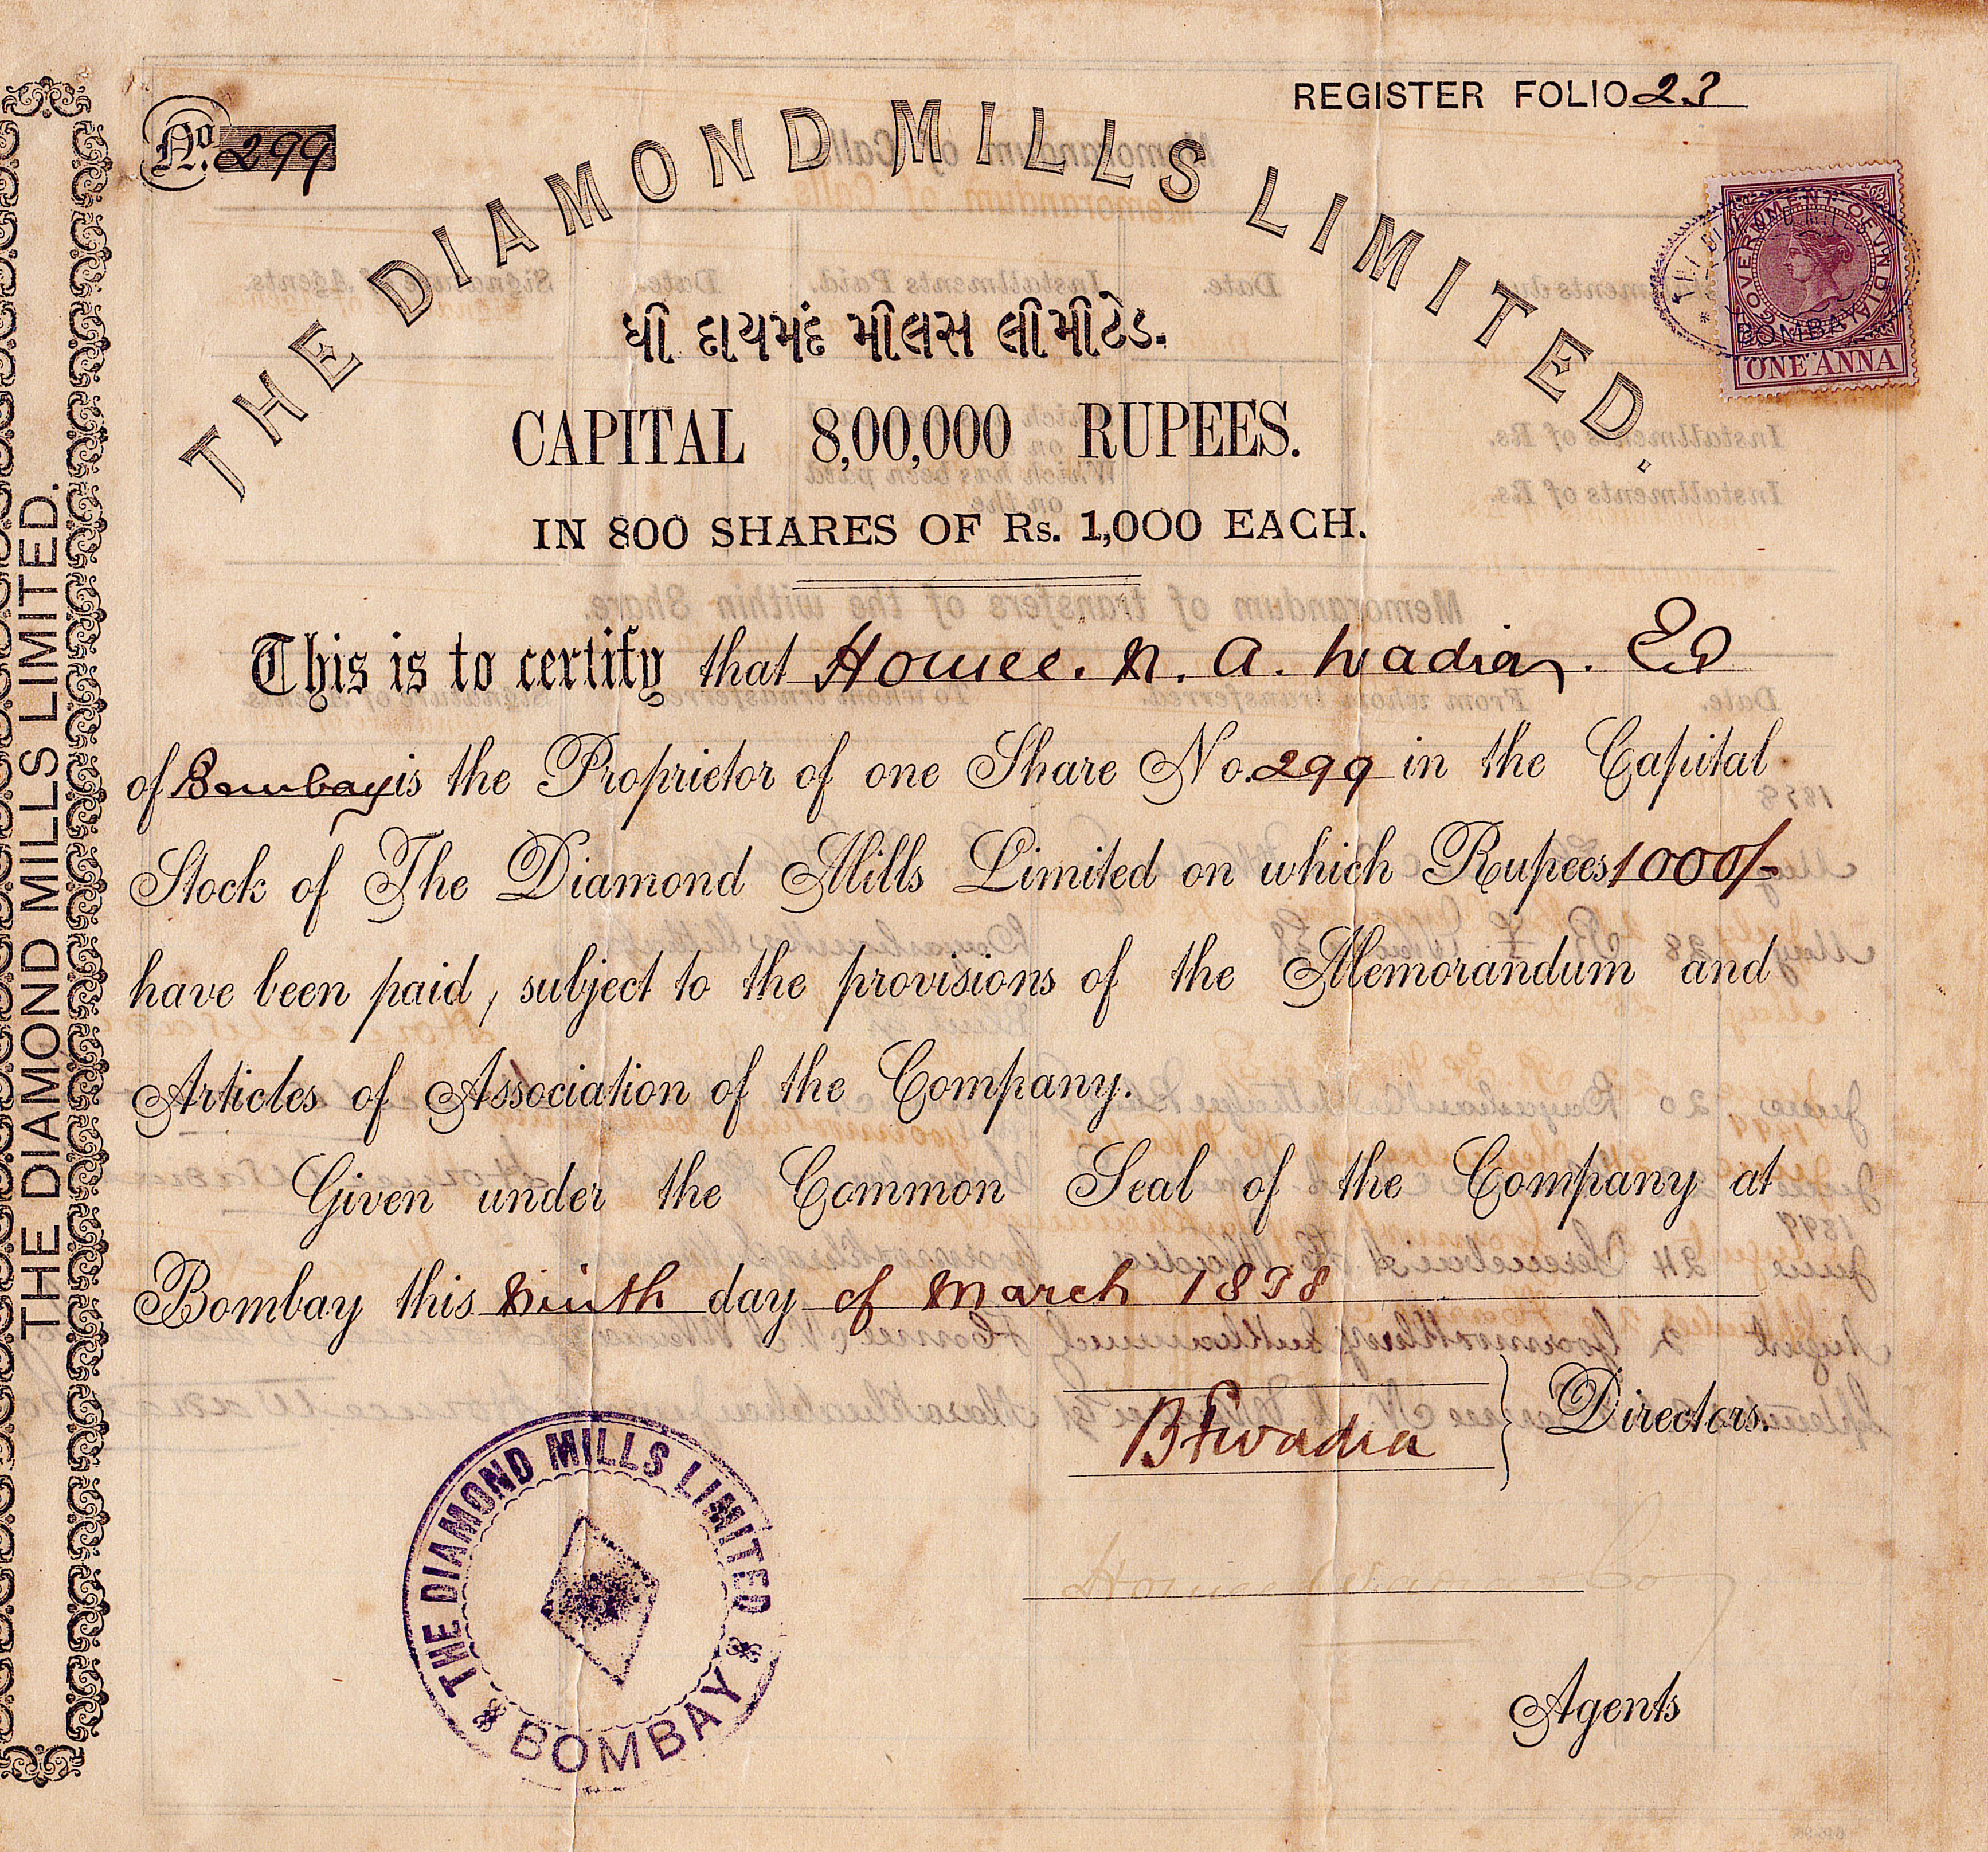 REGISTER FOLIO 23
No. 299
THE DIAMOND MILLS LIMITED.
ધી દાયમંદ મીલસ લીમીટેડ.
CAPITAL 8,00,000 RUPEES.
IN 800 SHARES OF Rs. 1,000 EACH.
GOVERNMENT OF INDIA
BOMBAY
ONE ANNA
This is to certify that Homee. N. A. Wadia.
of Bombay is the Proprietor of one Share No. 299 in the Capital
Stock of The Diamond Mills Limited on which Rupees 1000/-
have been paid, subject to the provisions of the Memorandum and
Articles of Association of the Company.
Given under the Common Seal of the Company at
Bombay this ninth day of March 1898
Wadia
Directors.
THE DIAMOND MILLS LIMITED
BOMBAY
Agents
THE DIAMOND MILLS LIMITED.